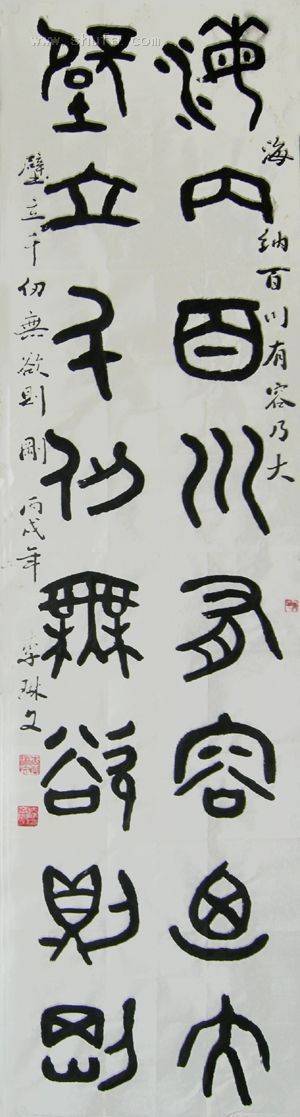 www.shufa.com
海納百川有容乃大
海内百川有容迺大
壁立千仞無欲則剛
壁立千仞無欲則剛 丙戌年 李琳文